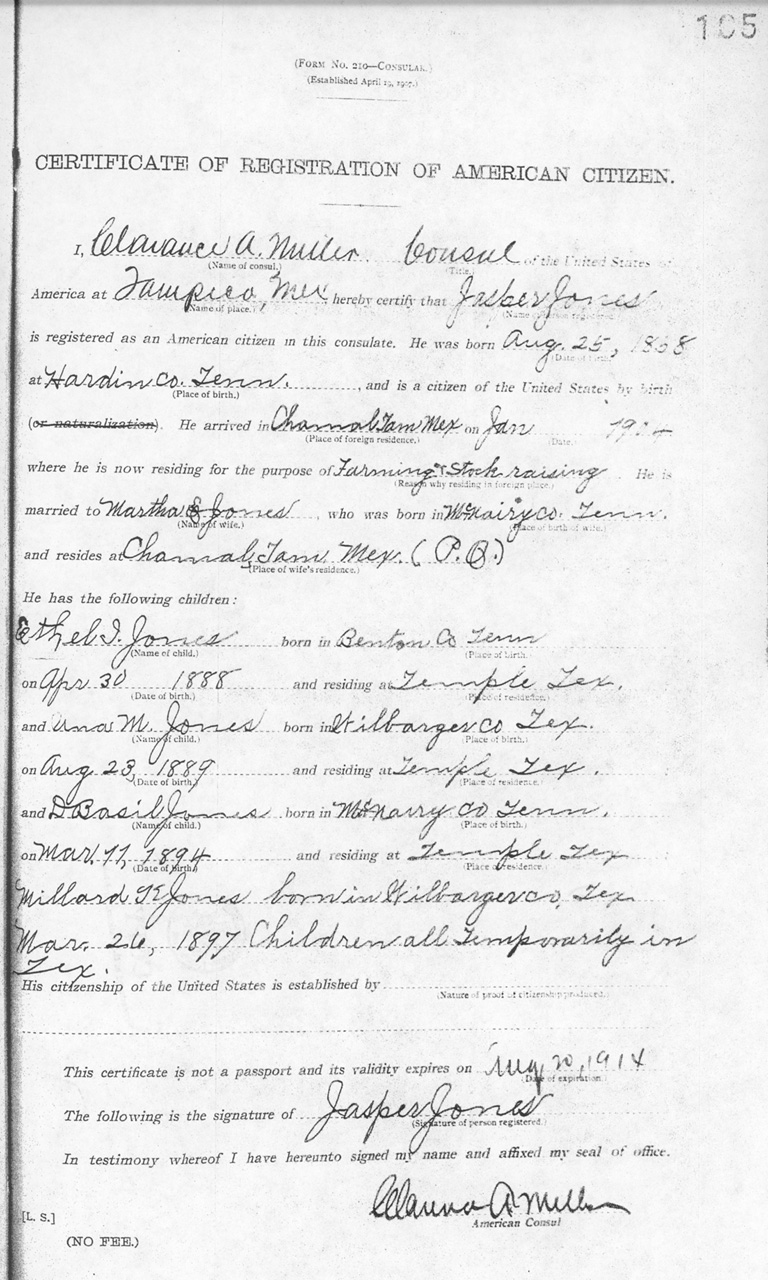 105
(FORM NO. 210—CONSULAR.)
(Established April 19, 1907.)
CERTIFICATE OF REGISTRATION OF AMERICAN CITIZEN.
I, Clarance A. Miller. Consul of the United States of
(Name of consul.) (Title.)
America at Tampico, Mex, hereby certify that Jasper Jones
(Name of place.) (Name of person registered.)
is registered as an American citizen in this consulate. He was born Aug. 25, 1858
(Date of birth.)
at Hardin Co. Tenn., and is a citizen of the United States by birth
(Place of birth.)
(or naturalization). He arrived in Chamal Tam Mex on Jan
(Place of foreign residence.) (Date.)
where he is now residing for the purpose of Farming & Stock raising. He is
(Reason why residing in foreign place.)
married to Martha E Jones, who was born in McNairy co. Tenn.
(Name of wife.) (Place of birth of wife.)
and resides at Chamal, Tam Mex. (P.O.)
(Place of wife's residence.)
He has the following children:
Ethel I. Jones born in Benton Co Tenn
(Name of child.) (Place of birth.)
on Apr 30 1888 and residing at Temple Tex.
(Date of birth.) (Place of residence.)
and Una M. Jones born in Wilbarger co Tex.
(Name of child.) (Place of birth.)
on Aug 23, 1889 and residing at Temple Tex.
(Date of birth.) (Place of residence.)
and D Basil Jones born in McNairy Co Tenn.
(Name of child.) (Place of birth.)
on Mar. 11, 1894 and residing at Temple Tex
(Date of birth.) (Place of residence.)
Millard Jones born in Wilbarger co, Tex
Mar. 26, 1897 Children all Temporarily in
Tex.
His citizenship of the United States is established by
(Nature of proof of citizenship produced.)
This certificate is not a passport and its validity expires on Aug, 20, 1914
(Date of expiration.)
The following is the signature of Jasper Jones
(Signature of person registered.)
In testimony whereof I have hereunto signed my name and affixed my seal of office.
Clarence A. Miller
American Consul
[L. S.]
(NO FEE.)